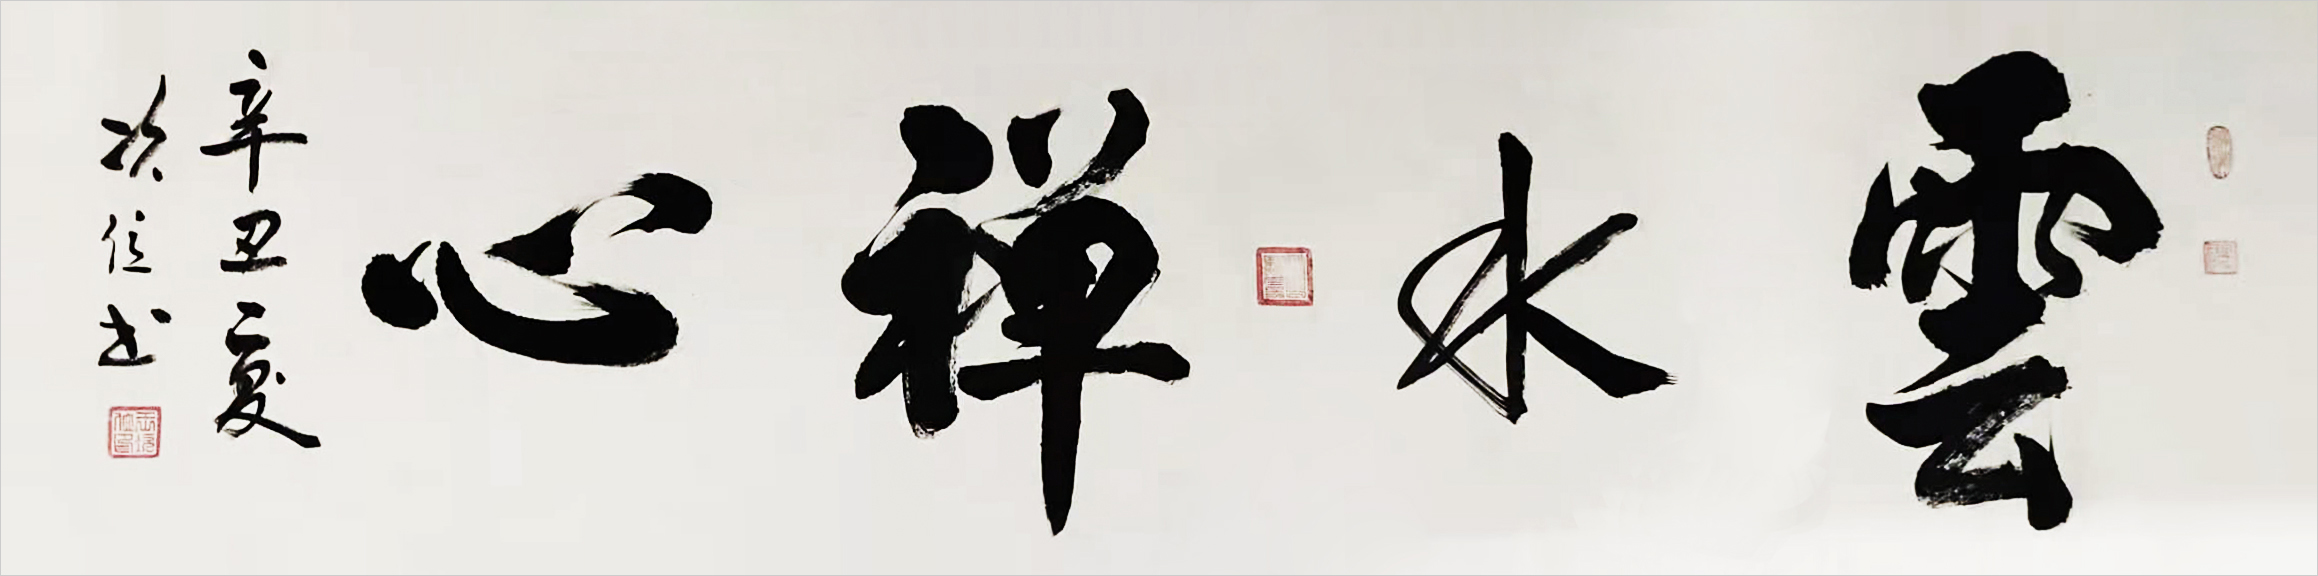 雲水禅心
辛丑夏
次位书